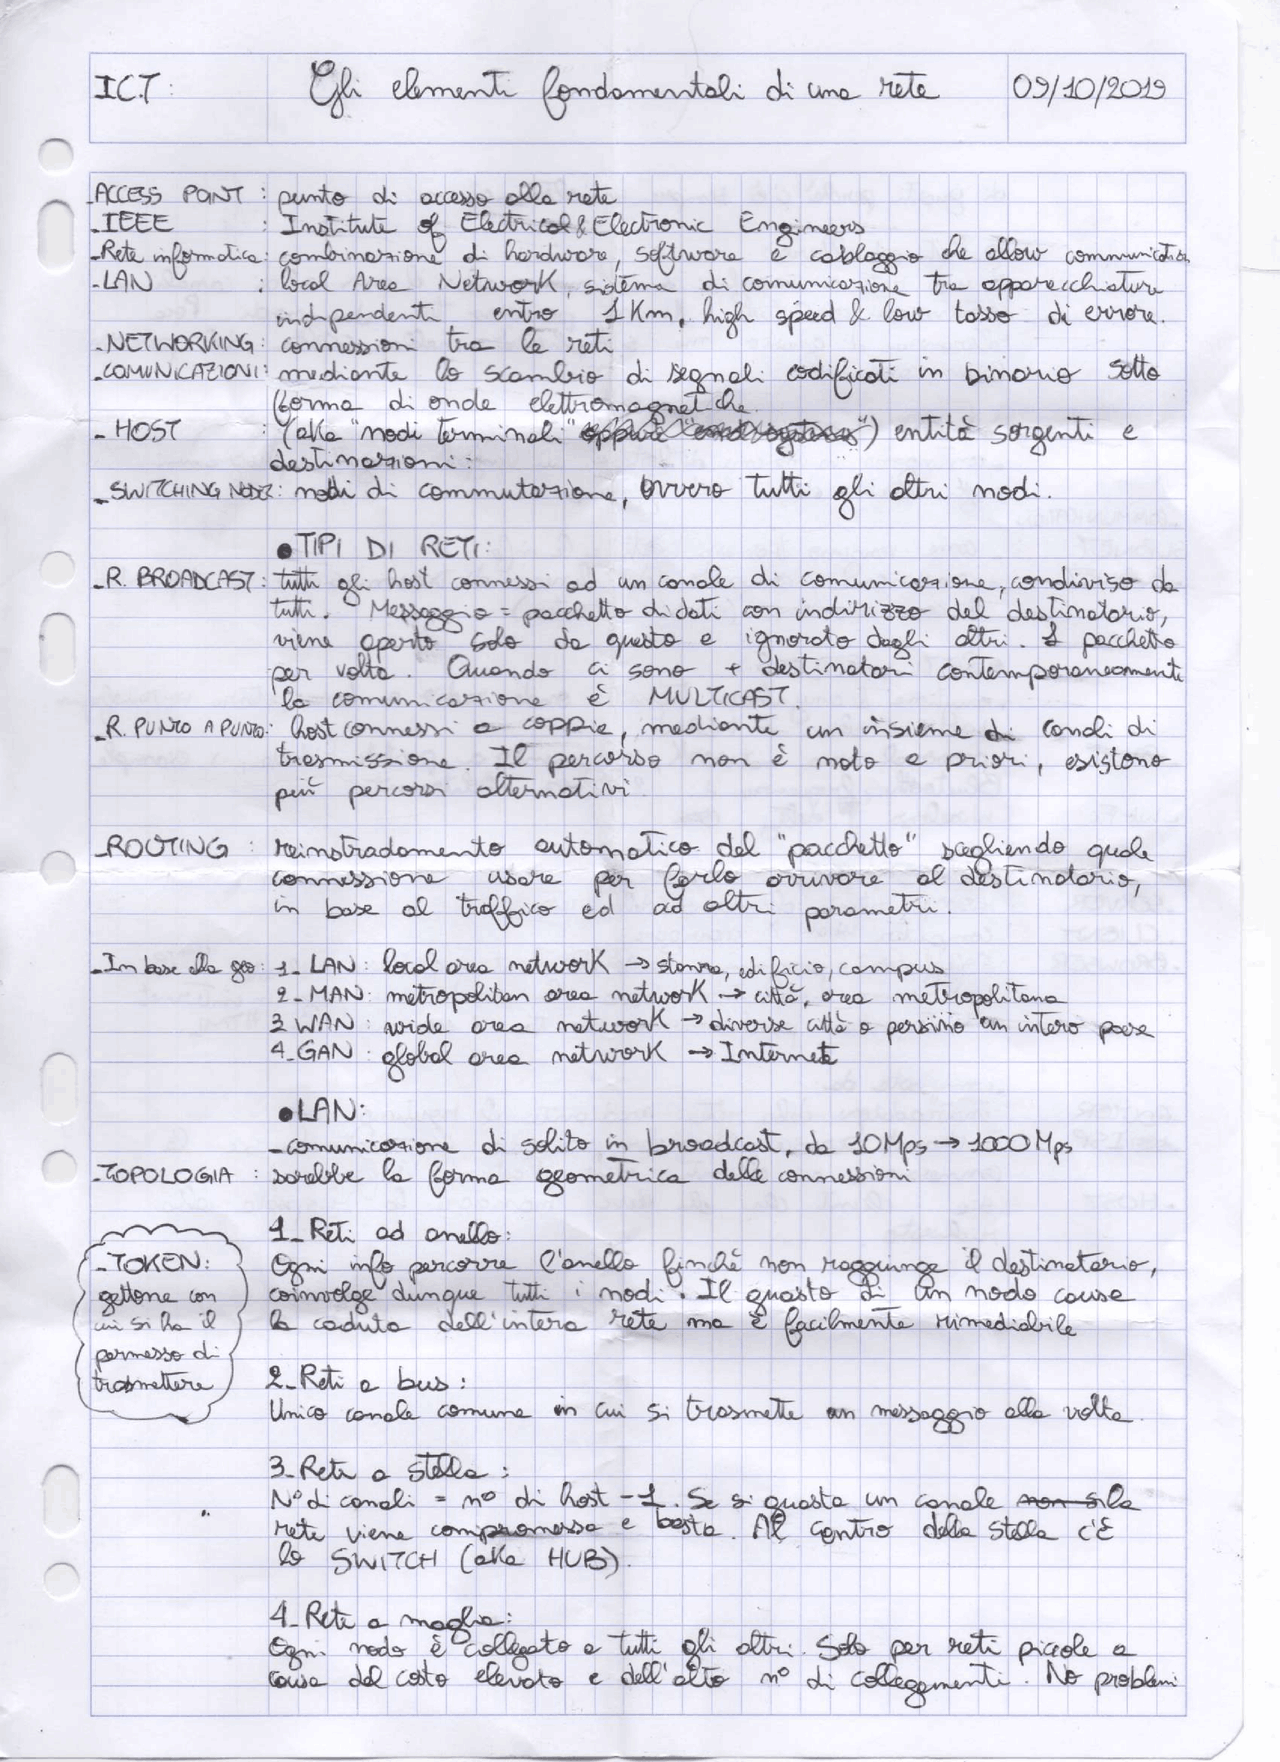 ICT: Gli elementi fondamentali di una rete 09/10/2019
-ACCESS POINT : punto di accesso alla rete
-IEEE : Institute of Electrical & Electronic Engineers
-Rete informatica: combinazione di hardware, software e cablaggio che allow communication
-LAN : local Area Network, sistema di comunicazione tra apparecchiature
indipendenti entro 1Km, high speed & low tasso di errore.
-NETWORKING: connessioni tra le reti
-COMUNICAZIONI: mediante lo scambio di segnali codificati in binario sotto
forma di onde elettromagnetiche.
-HOST : (aka "nodi terminali" oppure "end systems") entità sorgenti e
destinazioni:
-SWITCHING NODES: nodi di commutazione, ovvero tutti gli altri nodi.
•TIPI DI RETI:
-R. BROADCAST: tutti gli host connessi ad un canale di comunicazione, condiviso da
tutti. Messaggio = pacchetto di dati con indirizzo del destinatario,
viene aperto solo da questo e ignorato dagli altri. 1 pacchetto
per volta. Quando ci sono + destinatari contemporaneamente
la comunicazione è MULTICAST.
-R. PUNTO A PUNTO: host connessi a coppie, mediante un insieme di canali di
trasmissione. Il percorso non è noto a priori, esistono
più percorsi alternativi.
-ROUTING : reinstradamento automatico del "pacchetto" scegliendo quale
connessione usare per farlo arrivare al destinatario,
in base al traffico ed ad altri parametri.
-In base alla geo: 1- LAN: local area network → stanza, edificio, campus
2- MAN: metropolitan area network → città, area metropolitana
3 WAN: wide area network → diverse città o persino un intero paese
4-GAN: global area network → Internet
•LAN:
-comunicazione di solito in broadcast, da 10Mps → 1000Mps
-TOPOLOGIA : sarebbe la forma geometrica delle connessioni
1- Reti ad anello:
-TOKEN:
gettone con
cui si ha il
permesso di
trasmettere
Ogni info percorre l'anello finchè non raggiunge il destinatario,
coinvolge dunque tutti i nodi. Il guasto di un nodo causa
la caduta dell'intera rete ma è facilmente rimediabile
2-Reti a bus:
Unico canale comune in cui si trasmette un messaggio alla volta.
3-Reti a stella:
N° di canali = n° di host -1. Se si guasta un canale non si la
rete viene compromessa e basta. Al centro della stella c'È
lo SWITCH (aka HUB).
4-Rete a maglia:
Ogni nodo è collegato a tutti gli altri. Solo per reti piccole a
causa del costo elevato e dell'alto n° di collegamenti. No problemi